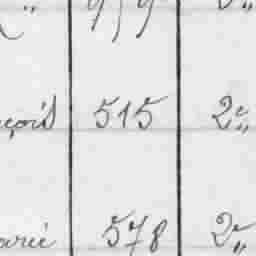 çois 515 2e„
arie 578 2e„